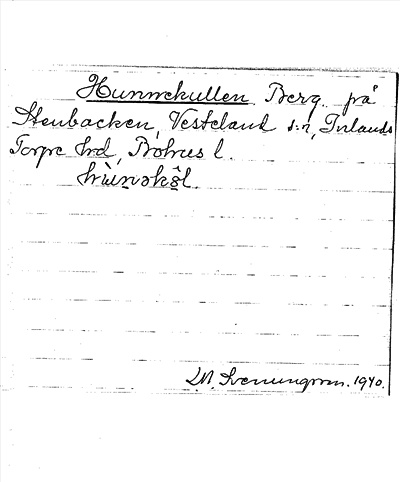 Hunnekullen. Berg. på
Stenbacken, Vesteland s:n, Inlands
Torpe hrd, Bohus l.
L.M. Svenungsson. 1940.